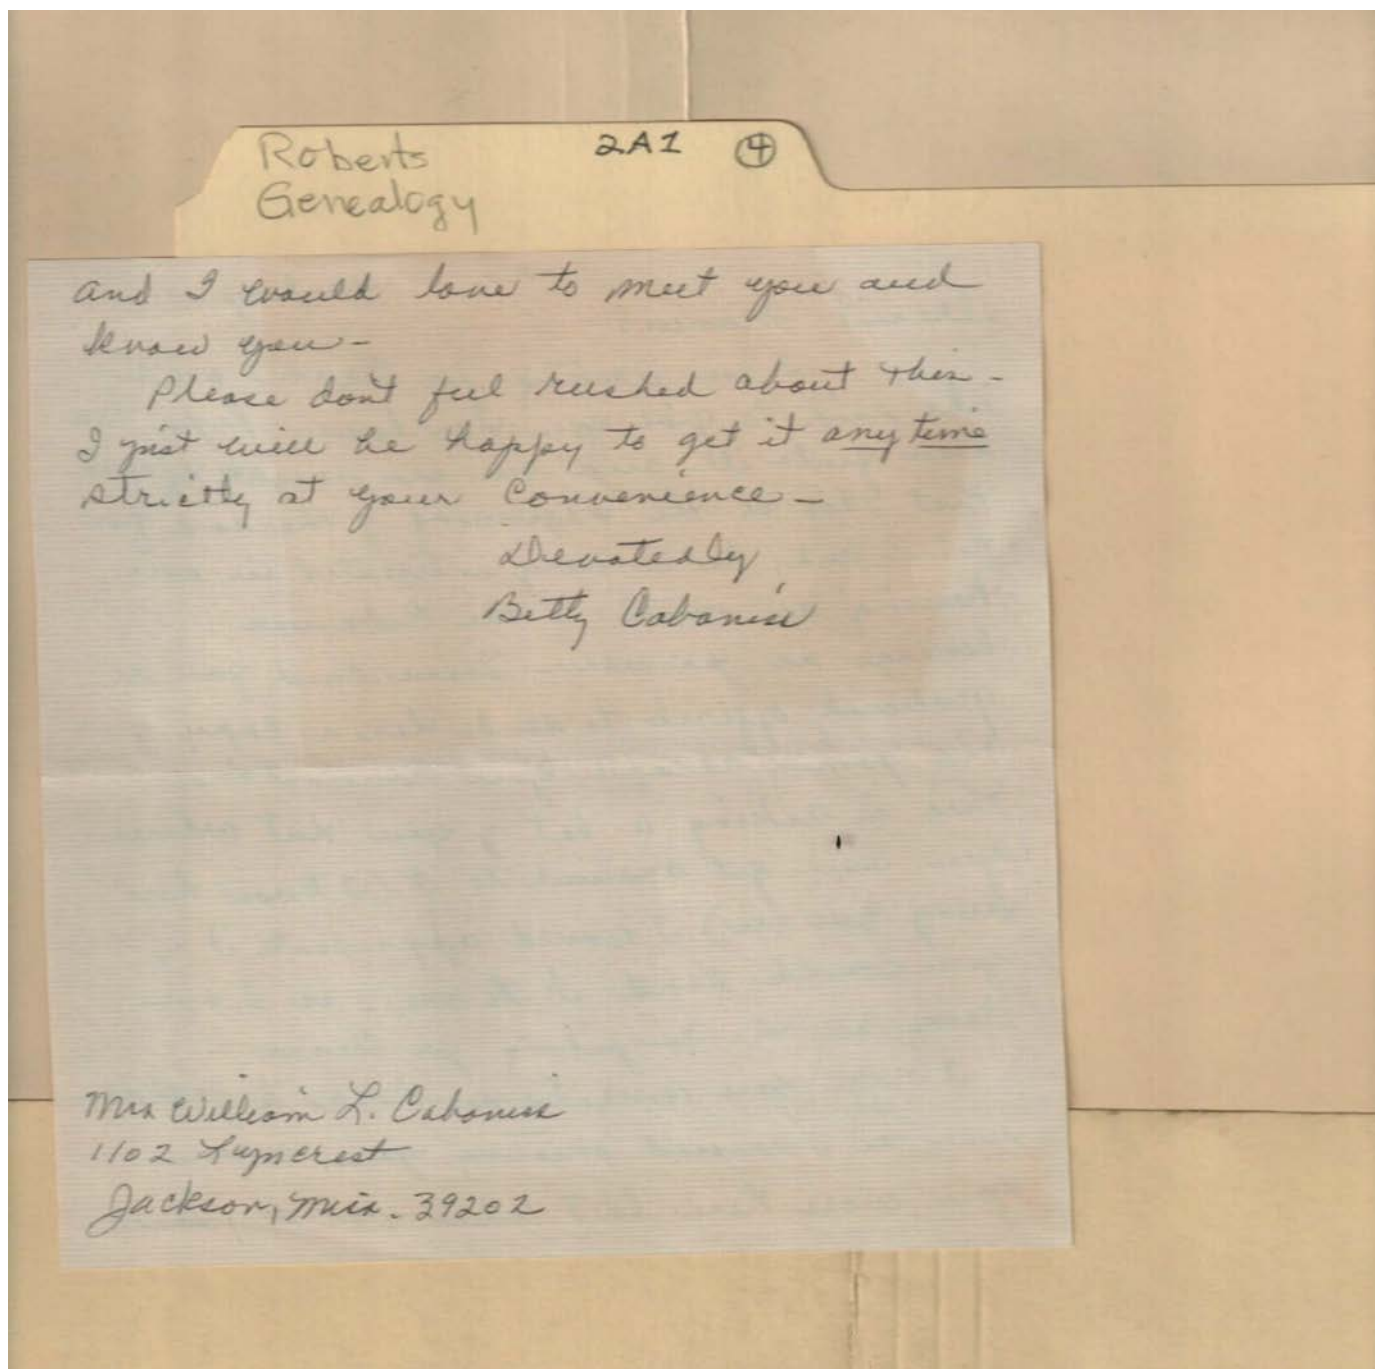 Roberts 2A1 4
Genealogy
and I would love to meet you and
know you -
Please don't feel rushed about this -
I just will be happy to get it any time
strictly at your convenience -
Devotedly,
Betty Cabaniss
Mrs William L. Cabaniss
1102 Lyncrest
Jackson, Miss. 39202